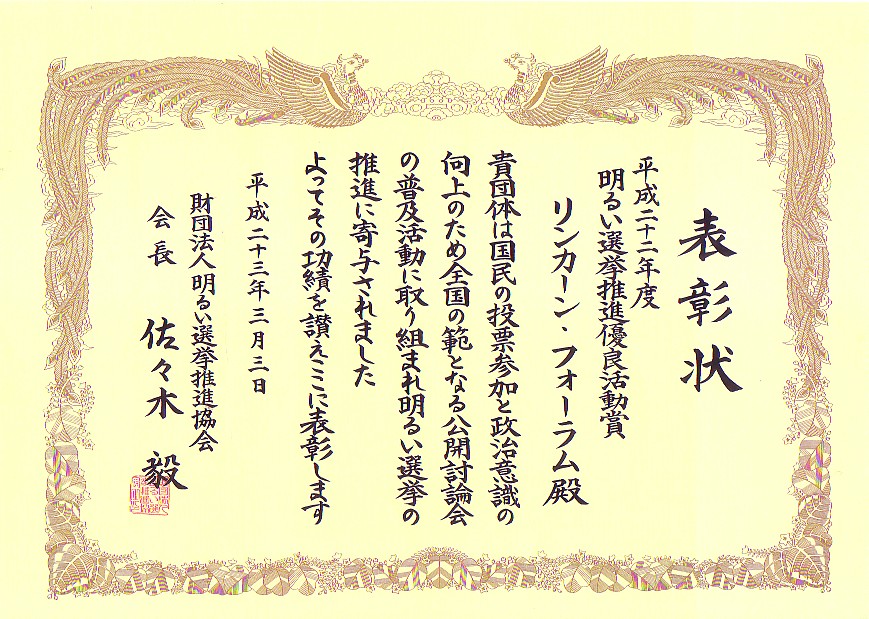 表彰状
平成二十二年度
明るい選挙推進優良活動賞
リンカーン・フォーラム殿
貴団体は国民の投票参加と政治意識の
向上のため全国の範となる公開討論会
の普及活動に取り組まれ明るい選挙の
推進に寄与されました
よってその功績を讃えここに表彰します
平成二十三年三月三日
財団法人 明るい選挙推進協会
会長 佐々木 毅